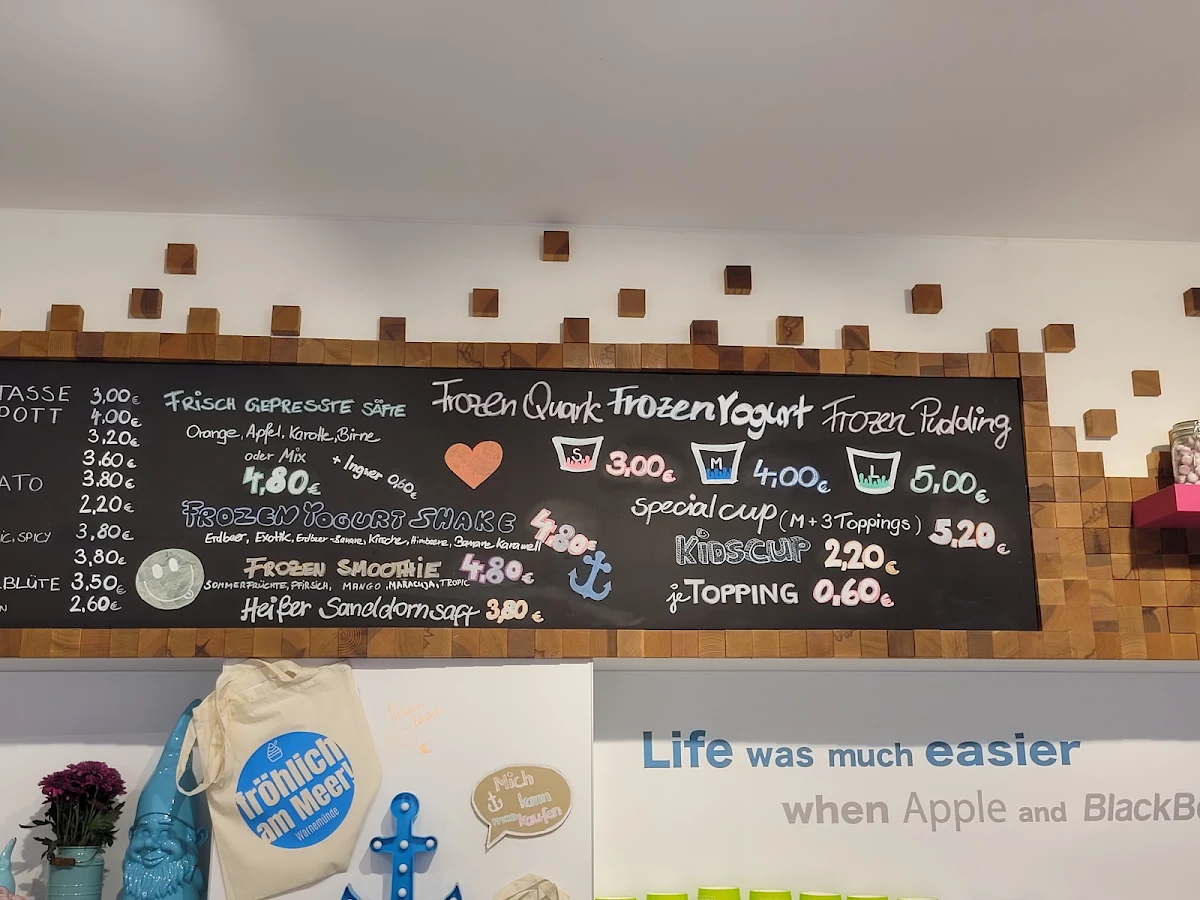 TASSE 3,00€
POTT 4,00€
3,20€
3,60€
ATO 3,80€
2,20€
IC, SPICY 3,80€
3,80€
BLÜTE 3,50€
N 2,60€
FRISCH GEPRESSTE SÄFTE
Orange, Apfel, Karotte, Birne
oder Mix
+ Ingwer 0,60€
4,80€
FROZEN YOGURT SHAKE 4,80€
Erdbeer, Exotik, Erdbeer-Banane, Kirsche, Himbeere, Banane Karamell
FROZEN SMOOTHIE 4,80€
SOMMERFRÜCHTE, PFIRSICH, MANGO, MARACUJA, TROPIC
Heißer Sanddornsaft 3,80€
Frozen Quark Frozen Yogurt Frozen Pudding
S 3,00€ M 4,00€ L 5,00€
special cup (M + 3 Toppings) 5,20€
KIDSCUP 2,20€
je TOPPING 0,60€
fröhlich
am Meer!
Warnemünde
Mich
kann
kaufen
Life was much easier
when Apple and BlackB